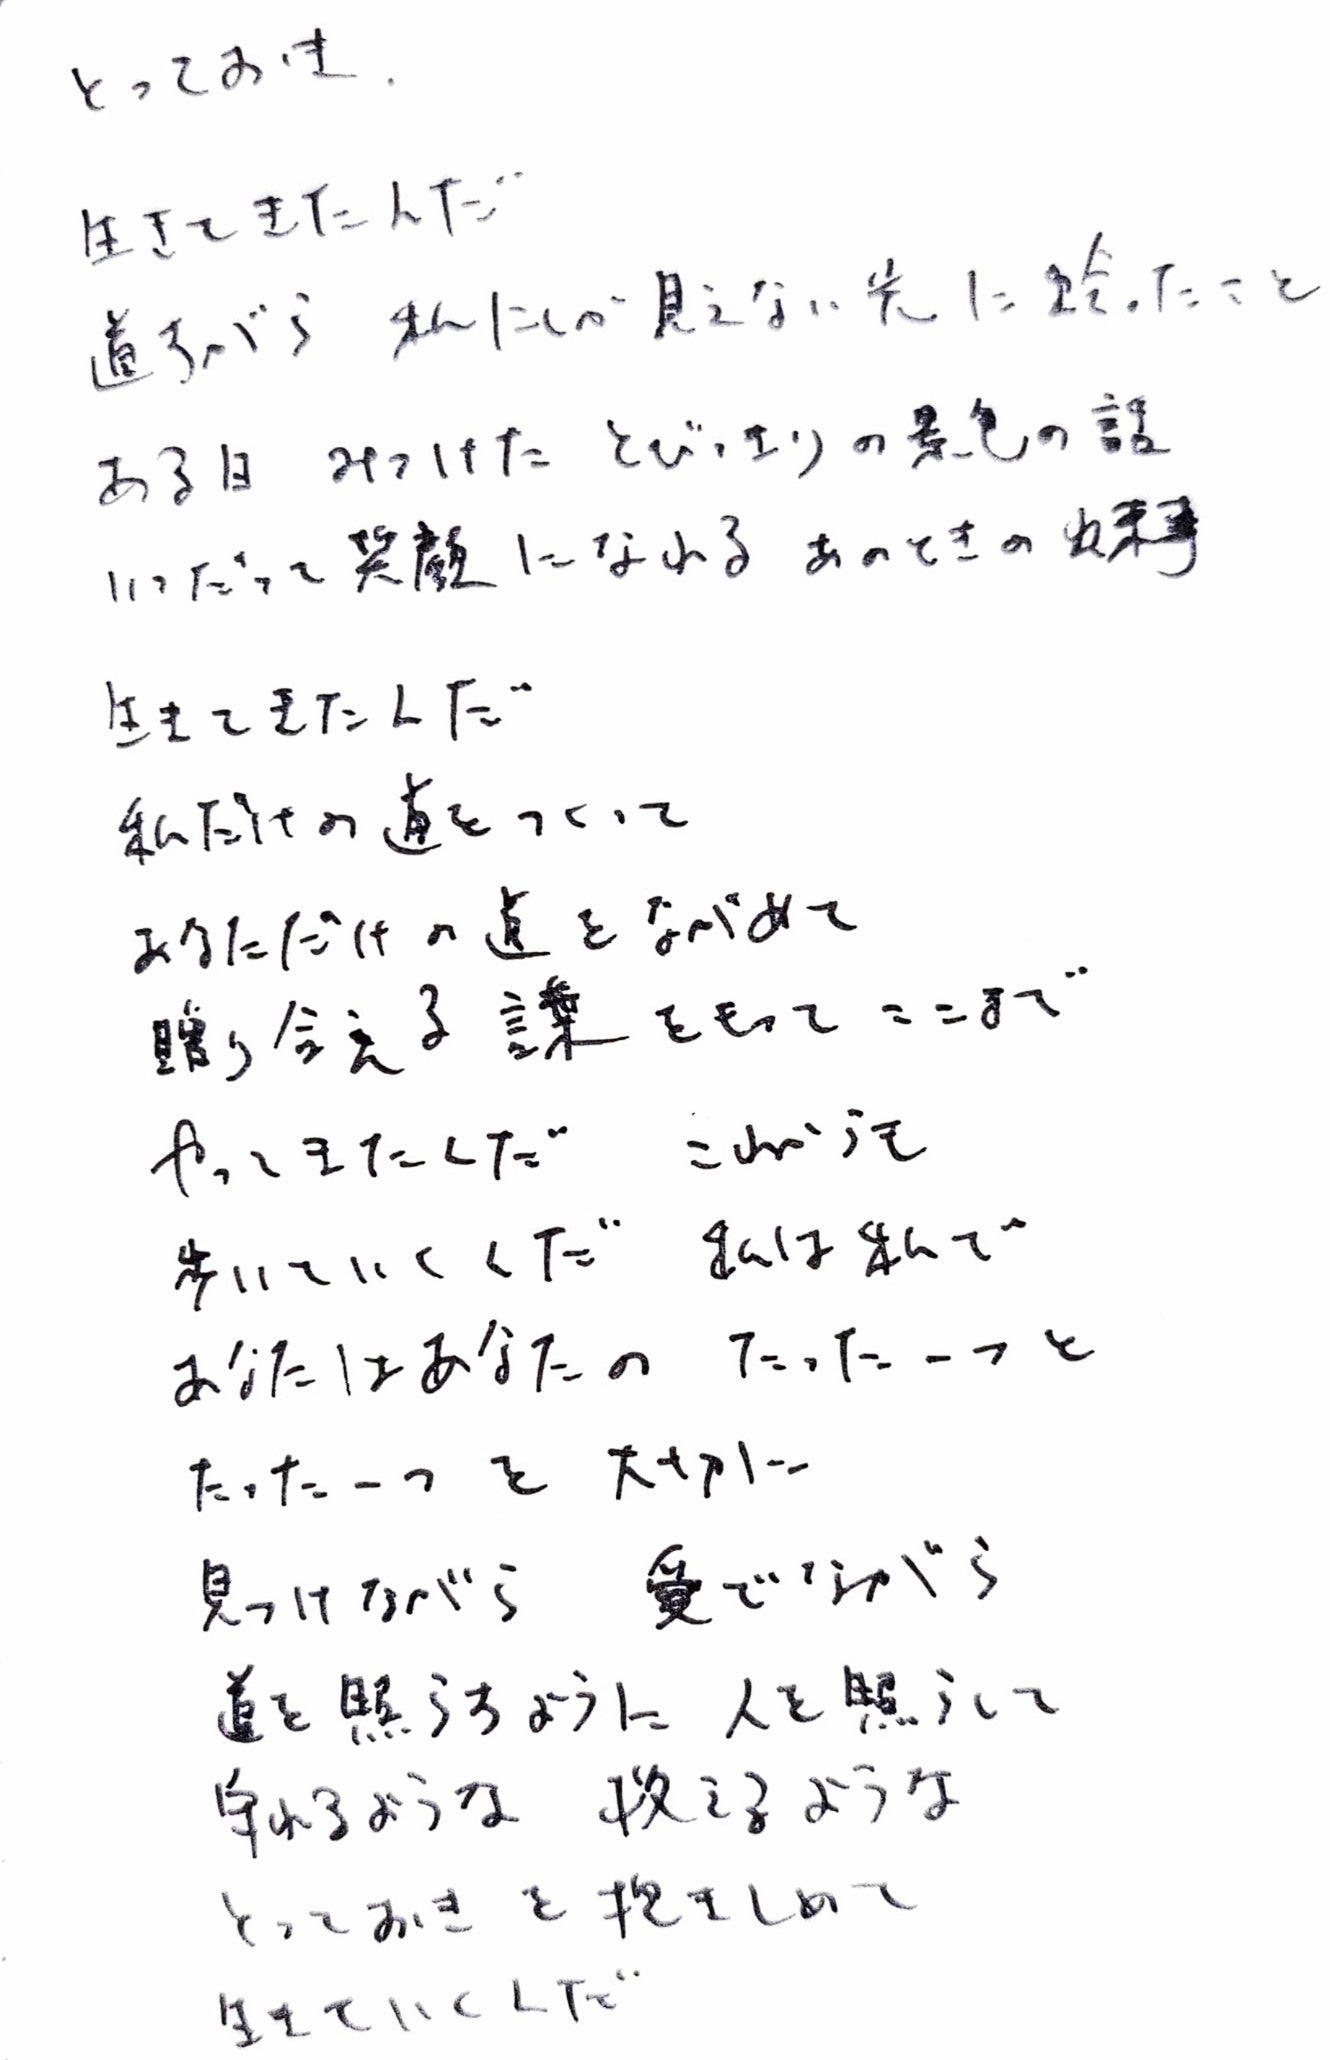 とっておき.
生きてきたんだ
道すがら 私にしか見えない先に拾ったこと
ある日 みつけた とびっきりの景色の話
いつだって笑顔になれる あのときの
生きてきたんだ
私だけの道をつくって
あなただけの道をながめて
贈り合える 言葉をもって ここまで
やってきたんだ これからも
歩いていくんだ 私は私で
あなたはあなたの たった一つと
たった一つを 大切に
見つけながら 愛でながら
道を照らすように 人を照らして
守れるような 救えるような
とっておきを抱きしめて
生きていくんだ